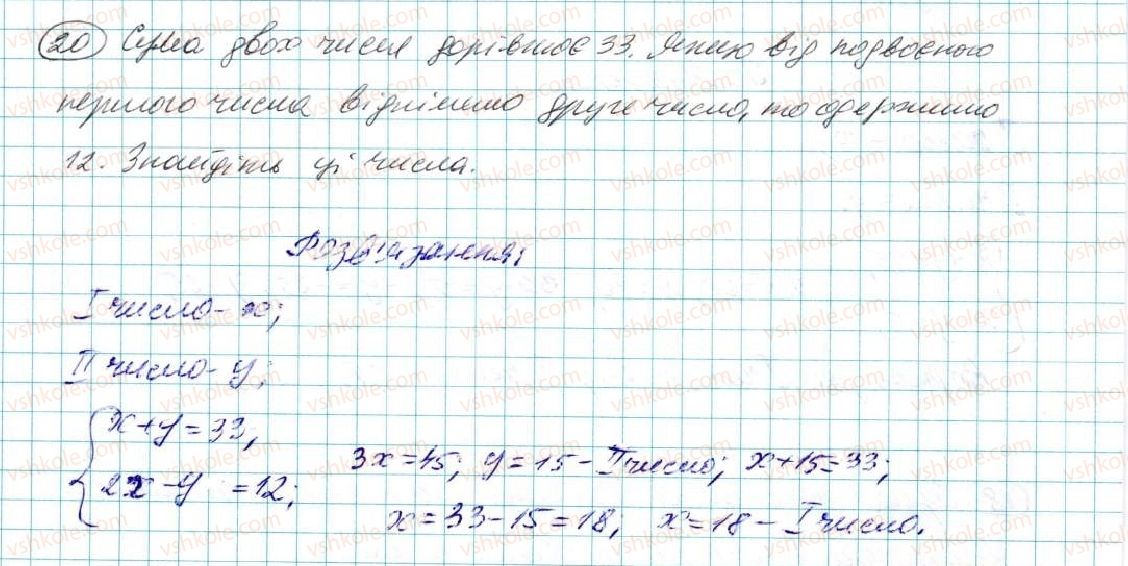 20 Сума двох чисел дорівнює 33. Якщо від подвоєного
першого числа віднімемо друге число, то одержимо
12. Знайдіть ці числа.
Розв'язання:
I число - x;
II число - y;
x + y = 33,
2x - y = 12;
3x = 45; y = 15 - II число; x + 15 = 33;
x = 33 - 15 = 18; x = 18 - I число.